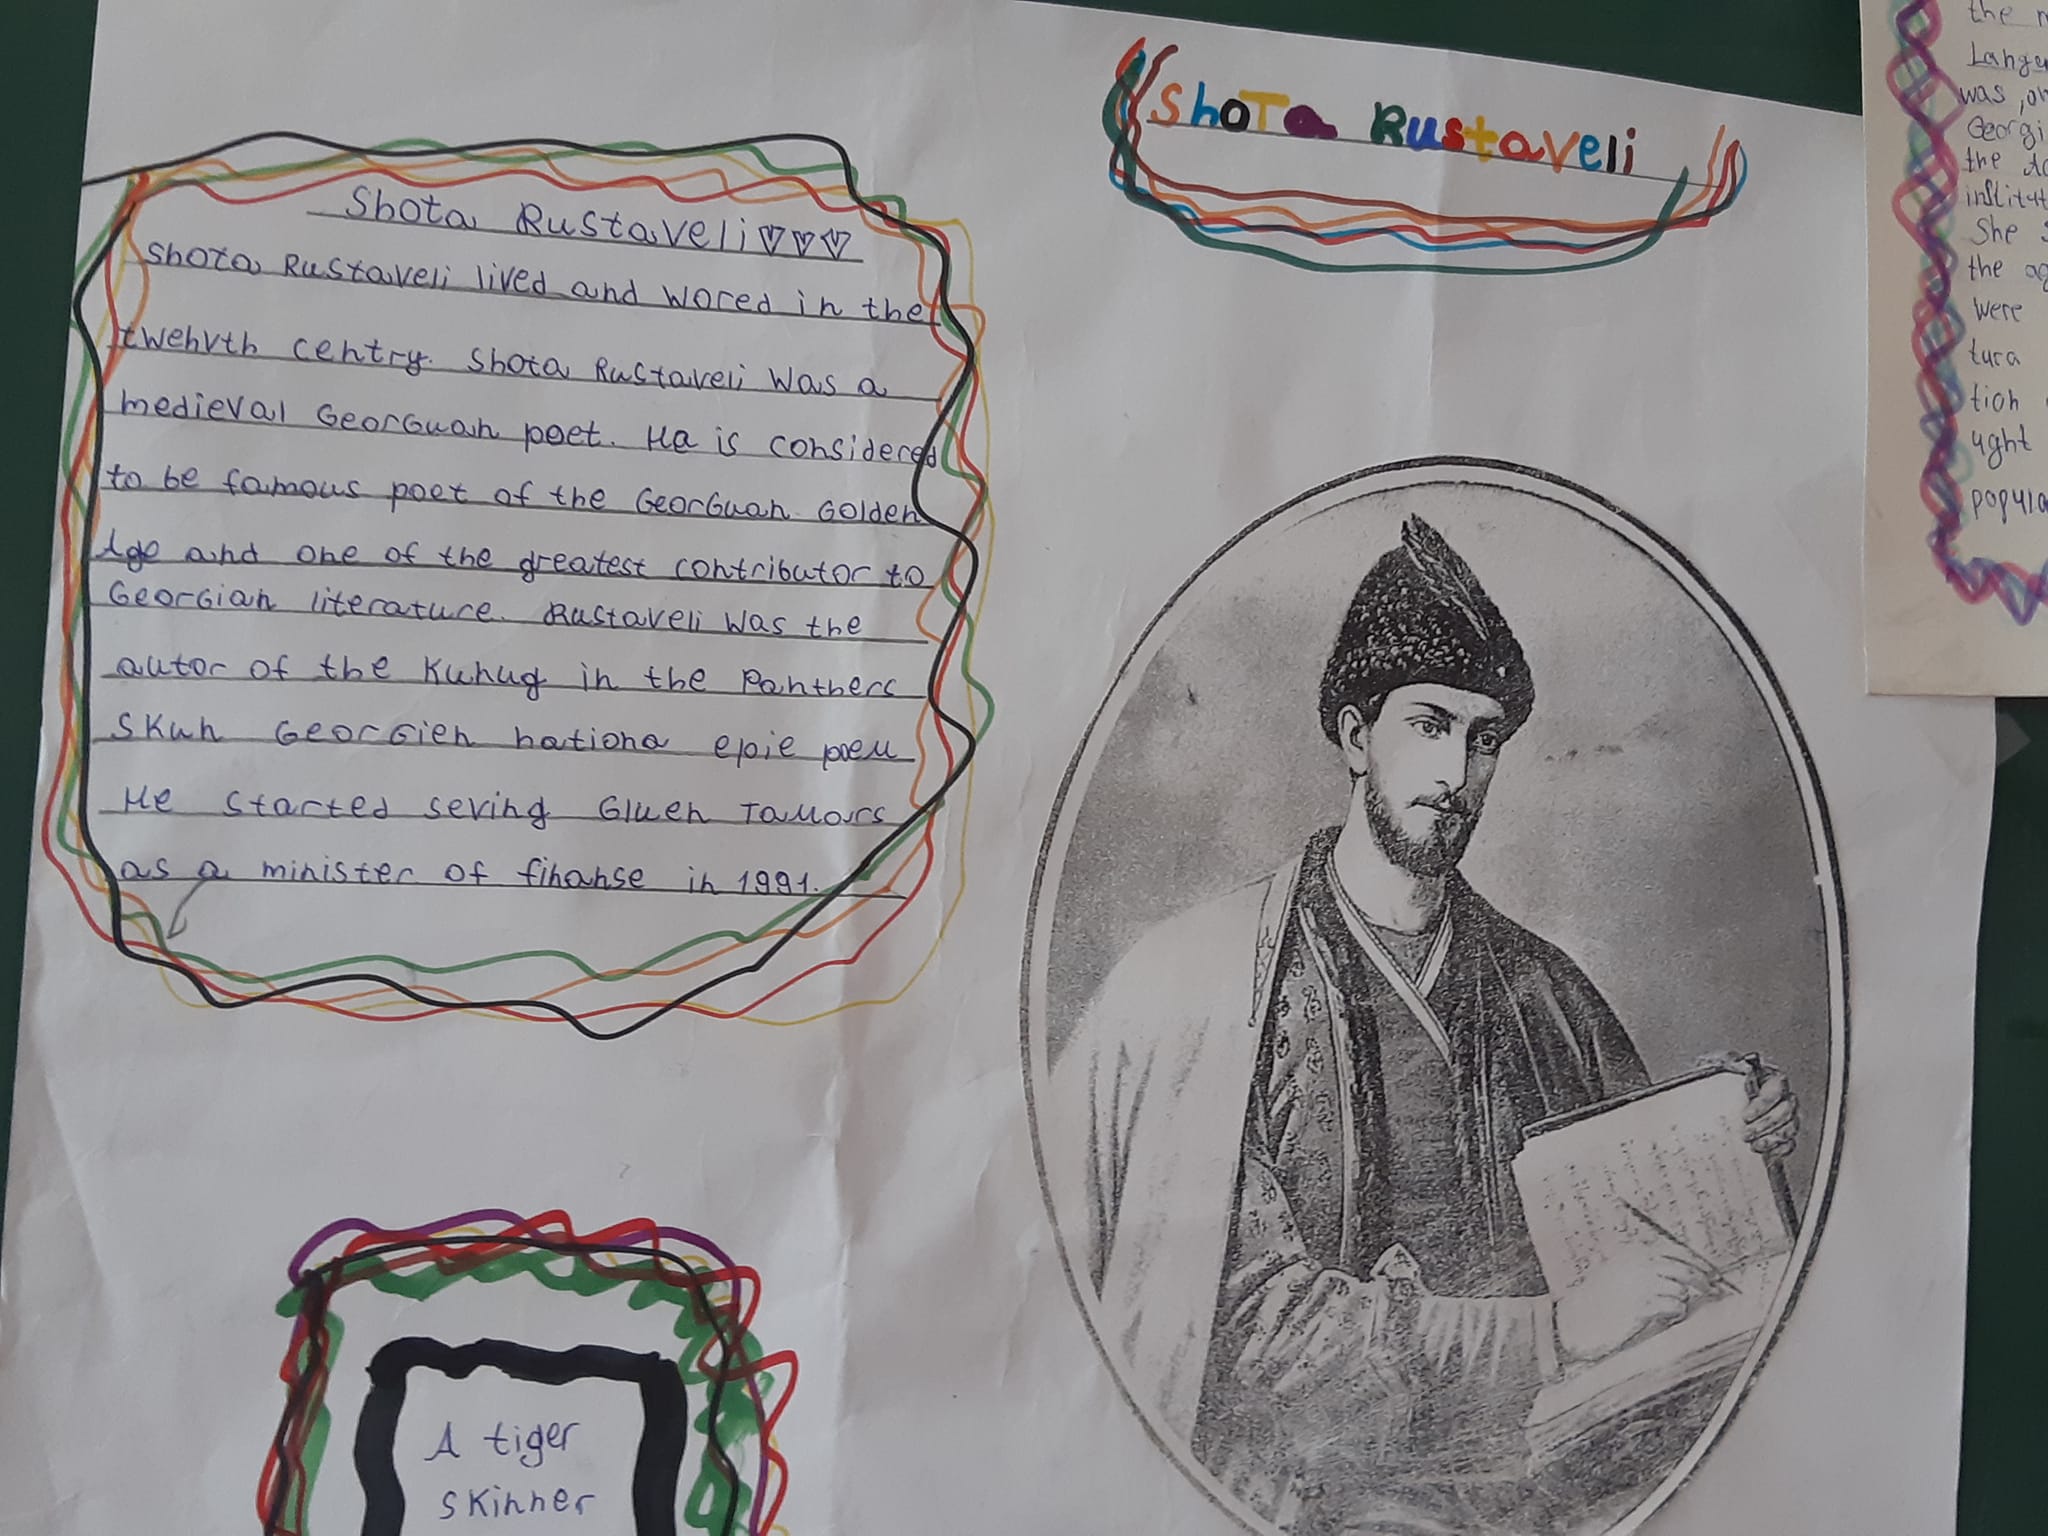 Shota Rustaveli
Shota Rustaveli♡♡♡
Shota Rustaveli lived and wored in the
twehvth centry. Shota Rustaveli was a
medieval Georguan poet. Ha is considered
to be famous poet of the Georguan Golden
Age and one of the greatest contributor to
Georgian literature. Rustaveli was the
autor of the Kuhug in the Panthers
Skuh Georgien nationa epie poeu
He started seving Gluen Tamars
as a minister of finanse in 1991.
A tiger
skinner
the
Langu
was, on
Georgi
the
institut
She
the ag
were
tura
tion
ught
popula